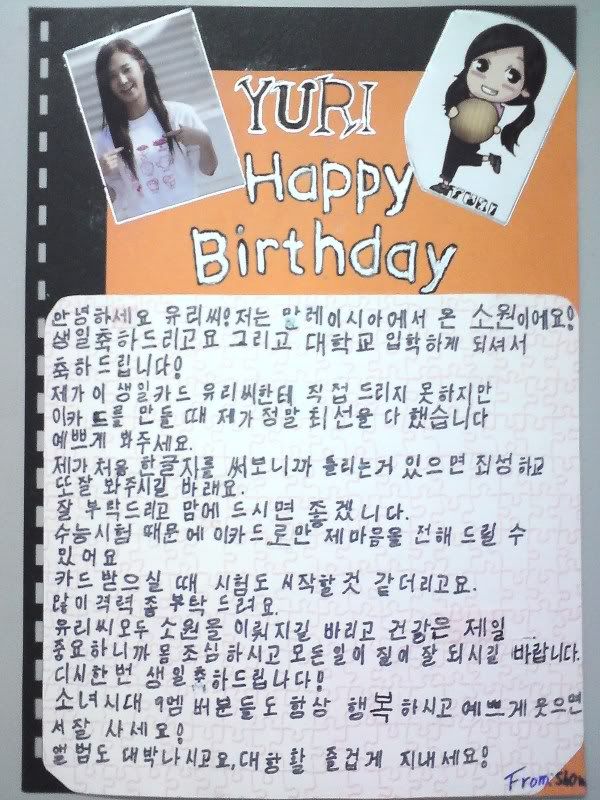 YURI
Happy
Birthday
YURI
안녕하세요 유리씨! 저는 말레이시아에서 온 소원이에요!
생일축하드리고요 그리고 대학교 입학하게 되셔서
축하드립니다!
제가 이 생일카드 유리씨한테 직접 드리지 못하지만
이카드를 만들 때 제가 정말 최선을 다 했습니다
예쁘게 봐주세요.
제가 처음 한글지를 써보니까 틀리는거 있으면 죄성하고
또 잘 봐주시길 바래요.
잘 부탁드리고 맘에 드시면 좋겠니다.
수능시험 때문에 이카드로만 제마음을 전해 드릴 수
있어요
카드 받으실 때 시험도 시작할것 같더리고요.
많이 격력 좀 부탁 드려요.
유리씨 모두 소원물 이뤄지길 바리고 건강은 제일
중요하니까 몸 조심하시고 모든일이 질이 잘 되시길 바랍니다.
디시한번 생일축하드립나다!
소녀시대 9멤버분들도 항상 행복하시고 예쁘게 웃으면
서 잘 사세요!
앨범도 대박나시고요, 대항활 즐겁게 지내세요!
From